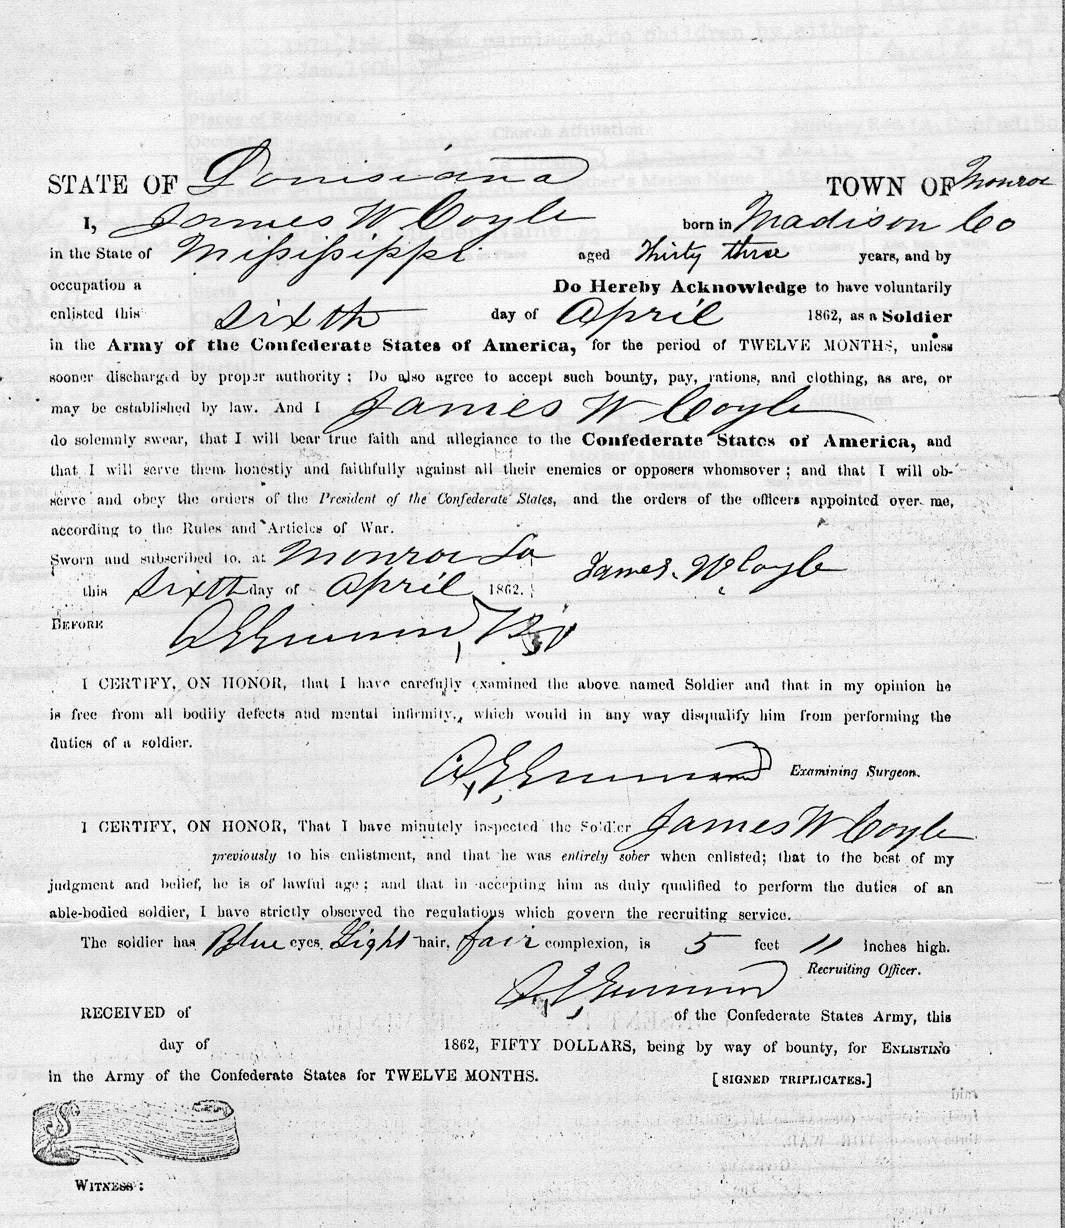 STATE OF Louisiana TOWN OF Monroe
I, James W Coyle born in Madison Co
in the State of Mississippi aged Thirty three years, and by
occupation a Do Hereby Acknowledge to have voluntarily
enlisted this sixth day of April 1862, as a Soldier
in the Army of the Confederate States of America, for the period of TWELVE MONTHS, unless
sooner discharged by proper authority; Do also agree to accept such bounty, pay, rations, and clothing, as are, or
may be established by law. And I James W Coyle
do solemnly swear, that I will bear true faith and allegiance to the Confederate States of America, and
that I will serve them honestly and faithfully against all their enemies or opposers whomsover; and that I will ob-
serve and obey the orders of the President of the Confederate States, and the orders of the officers appointed over me,
according to the Rules and Articles of War.
Sworn and subscribed to, at Monroe La
James W Coyle
this Sixth day of April 1862.
BEFORE
I CERTIFY, ON HONOR, that I have carefully examined the above named Soldier and that in my opinion he
is free from all bodily defects and mental infirmity, which would in any way disqualify him from performing the
duties of a soldier.
Examining Surgeon.
I CERTIFY, ON HONOR, That I have minutely inspected the Soldier James W Coyle
previously to his enlistment, and that he was entirely sober when enlisted; that to the best of my
judgment and belief, he is of lawful age; and that in accepting him as duly qualified to perform the duties of an
able-bodied soldier, I have strictly observed the regulations which govern the recruiting service.
The soldier has Blue eyes, Light hair, fair complexion, is 5 feet 11 inches high.
Recruiting Officer.
RECEIVED of of the Confederate States Army, this
day of 1862, FIFTY DOLLARS, being by way of bounty, for ENLISTING
in the Army of the Confederate States for TWELVE MONTHS. [SIGNED TRIPLICATES.]
WITNESS: